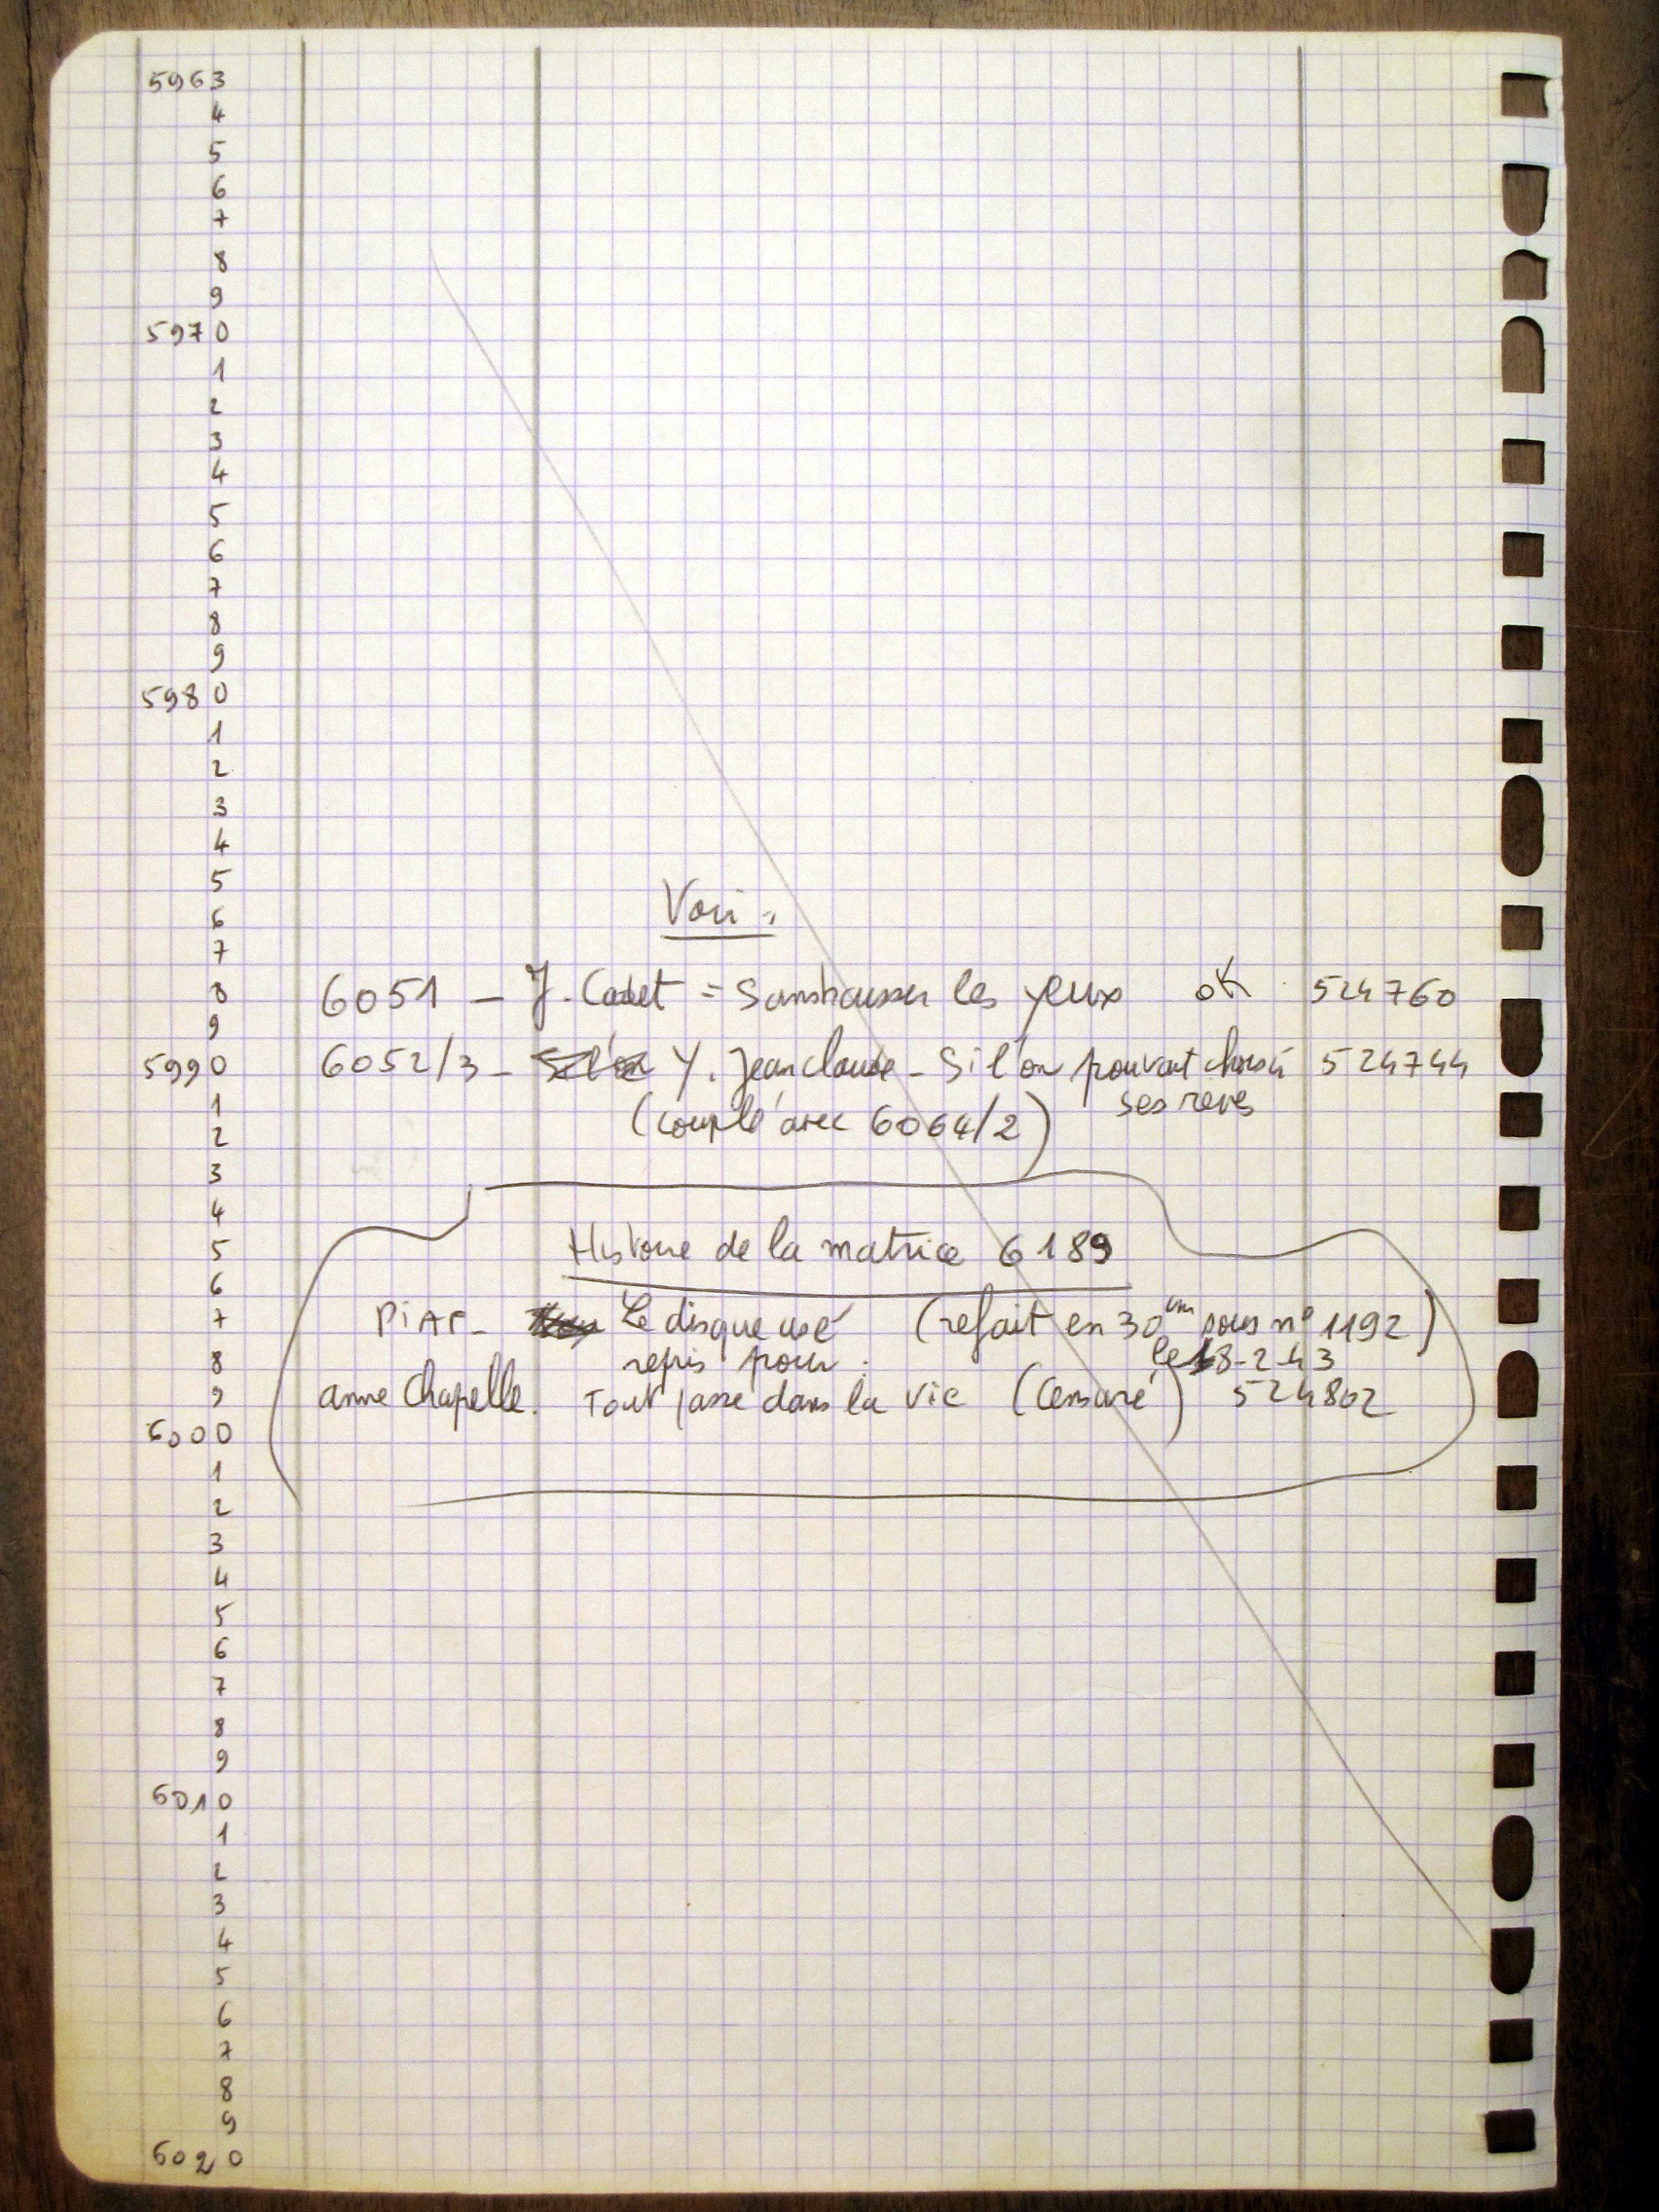 5963
4
5
6
7
8
9
5970
1
2
3
4
5
6
7
8
9
5980
1
2
3
4
5
6
7
8
9
5990
1
2
3
4
5
6
7
8
9
6000
1
2
3
4
5
6
7
8
9
6010
1
2
3
4
5
6
7
8
9
6020
Voir :
6051 – J. Cadet = Sans hausser les yeux OK 524760
6052/3 – Y. Jeanclaude – Si l'on pouvait choisir 524744
ses rêves
(couplé avec 6064/2)
Histoire de la matrice 6189
PIAF – Le disque usé (refait en 30 cm sous n° 1192)
repris pour : le 18-2-43
Anne Chapelle. Tout passe dans la vie (Censuré) 524802